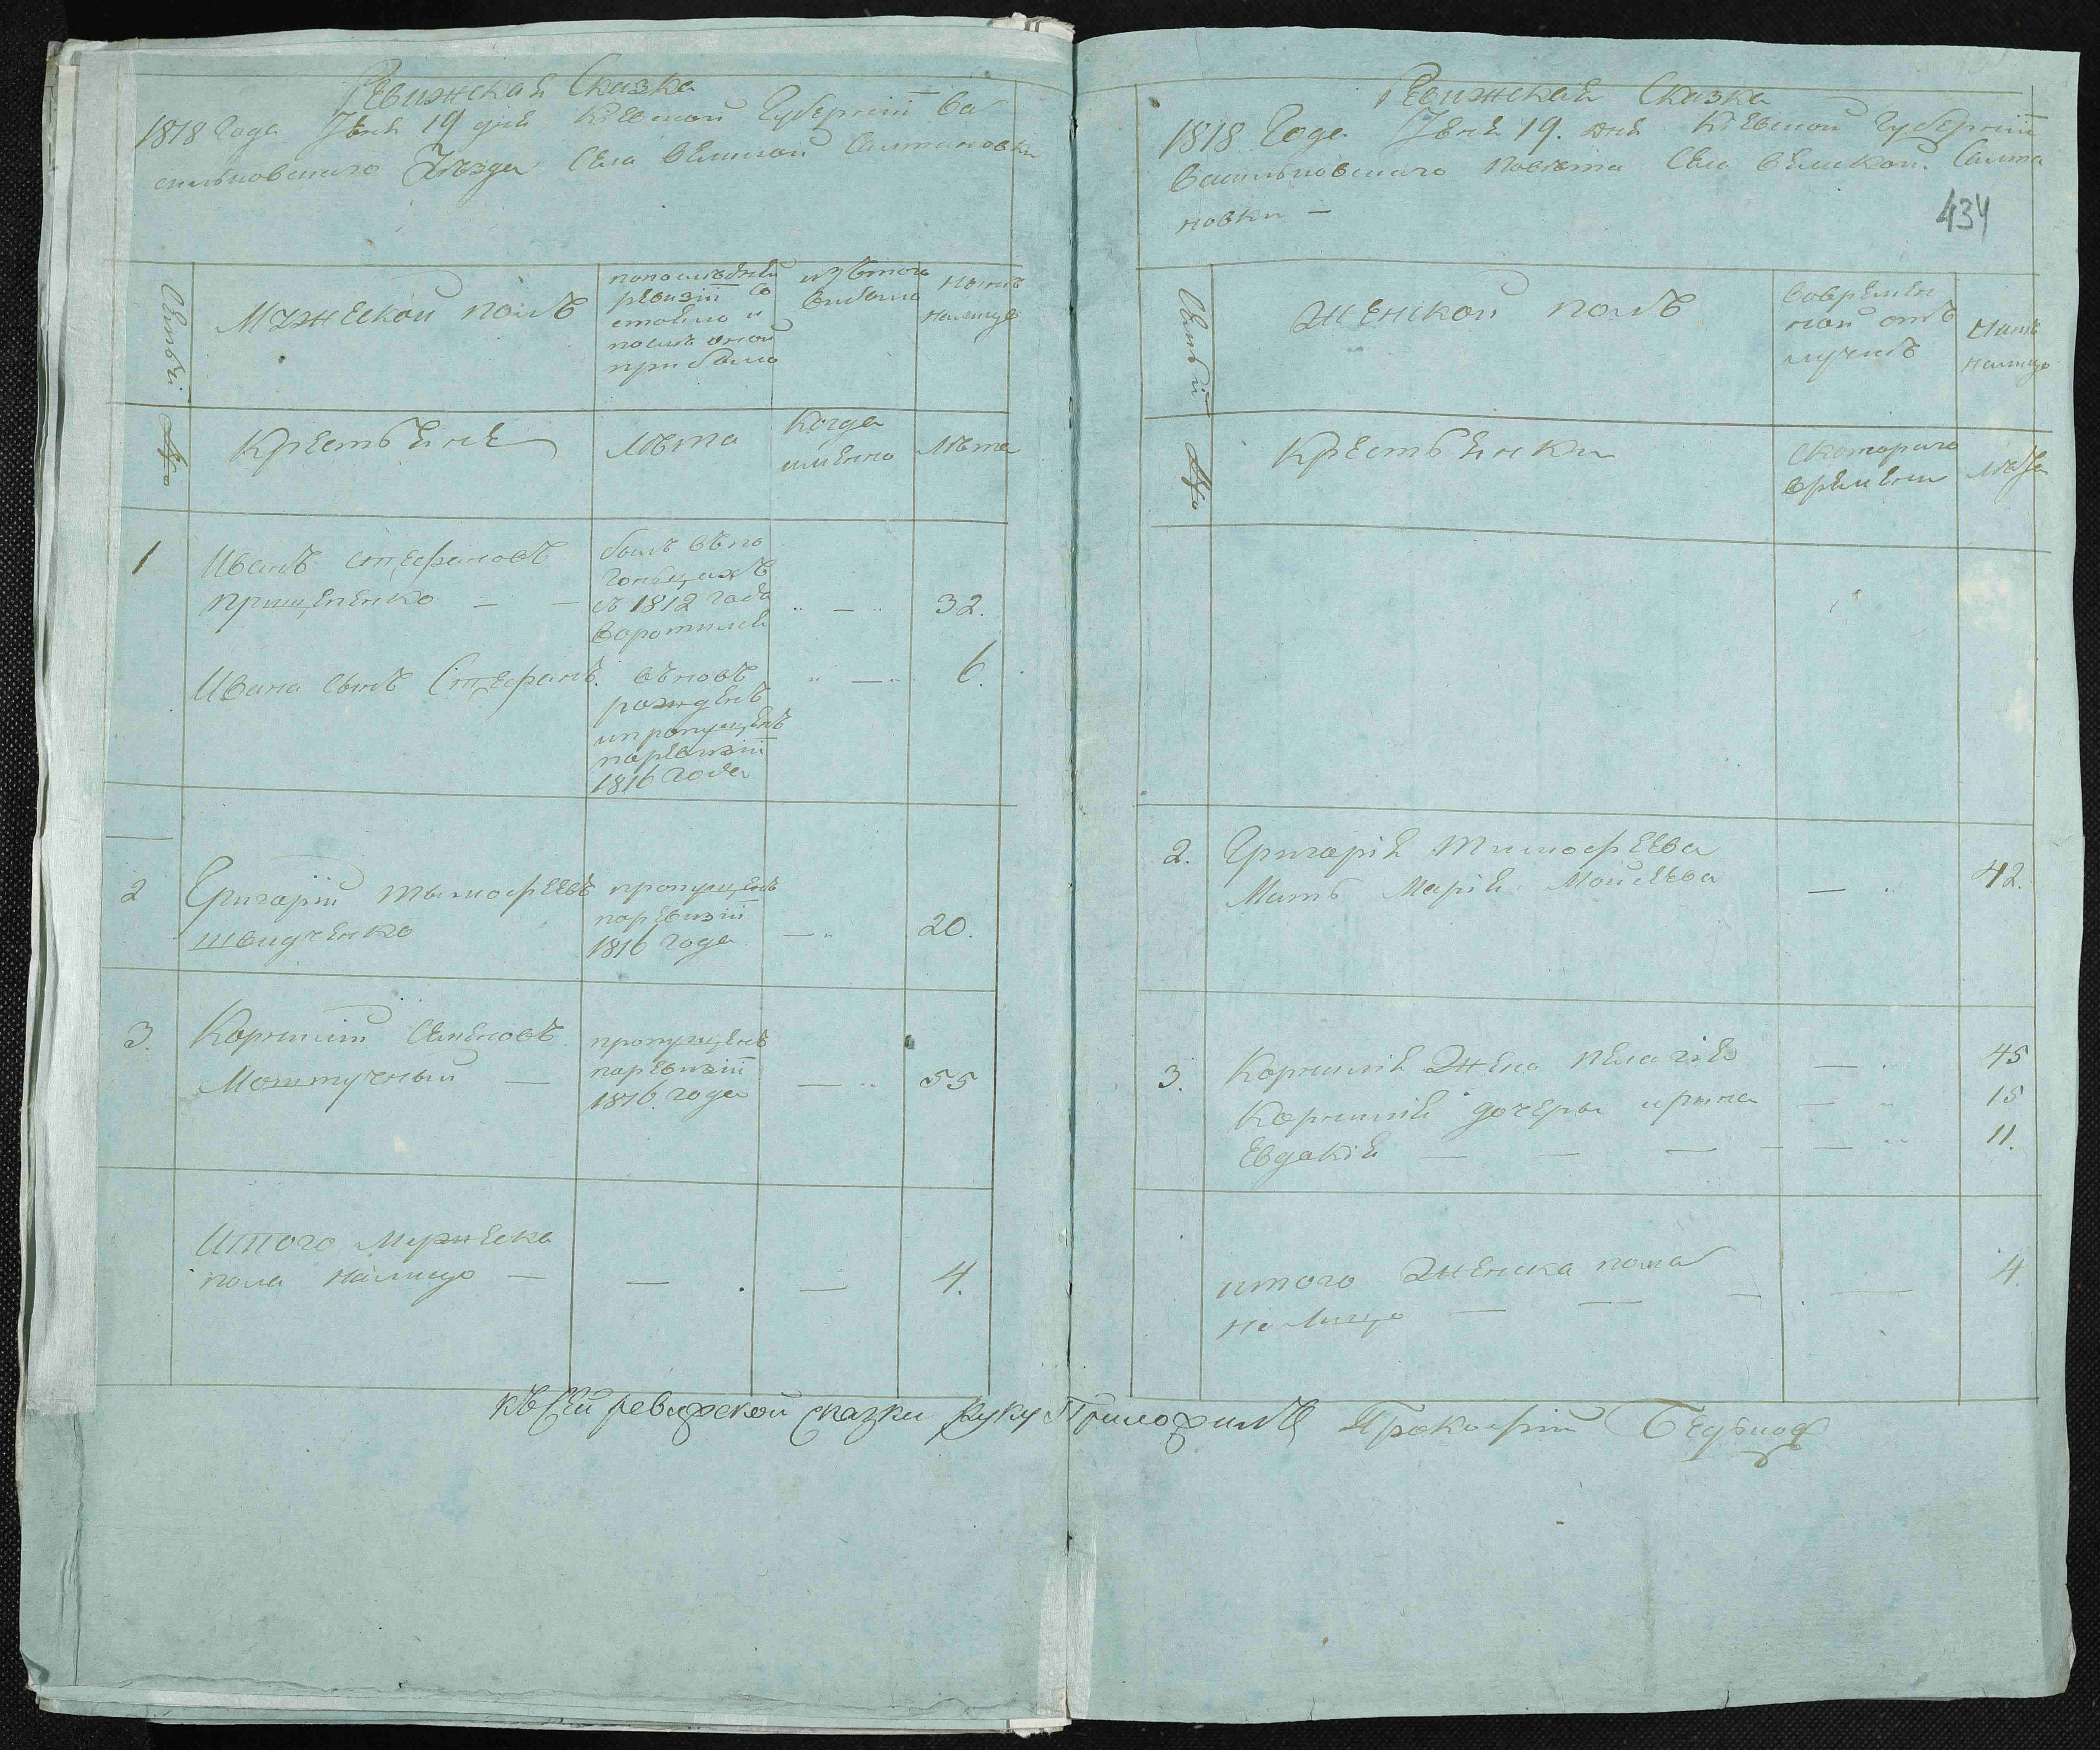 Ревижская Сказка
1818 Года Іюня 19 дня Кіевской Губерніи Ва
сильковскаго Уѣзда Села Великой Салтановки
Семьи №
Мужеской полъ
попослѣдней
ревизіи со
стояло и
послѣ оной
прибыло
изъ того
выбыло
Нынѣ
налицо
Крестьяне
Лѣта
Когда
именно
Лѣта
1
Иванъ Стефановъ
Прищепенко — —
былъ въ по
гоньцахъ
съ 1812 года
воротился
32.
Ивана сынъ Стефанъ.
вѣновь
рожденъ
ипропущенъ
поревизіи
1816 года
6.
2
Григорій Тымофеевъ
Швидченко
пропущенъ
поревизіи
1816 года
20.
3.
Корнилий Семеновъ
Мотту́чный —
пропущенъ
поревизіи
1816 года
55
Итого Мужеска
пола налицо —
4.
Ревижская Сказка
1818 Года Іюня 19. дня Кіевской Губерніи
Васильковскаго Повѣта Села Великой Салта
новки —
434
Семьи №
Женской полъ
вовремен
ной отъ
лучкѣ
Нынѣ
налицо
Крестьянки
скотораго
времени
Лѣта
2.
Григорія Тимофеева
Мать Марія Мойсеева
42.
3.
Корнилія Жена Пелагія
45
Корнилія дочеры Ирина
15
Евдокія — — — —
11.
итого Женска пола
на лицо — — —
4.
къ сей ревижской сказки руку Приложилъ Прокофій